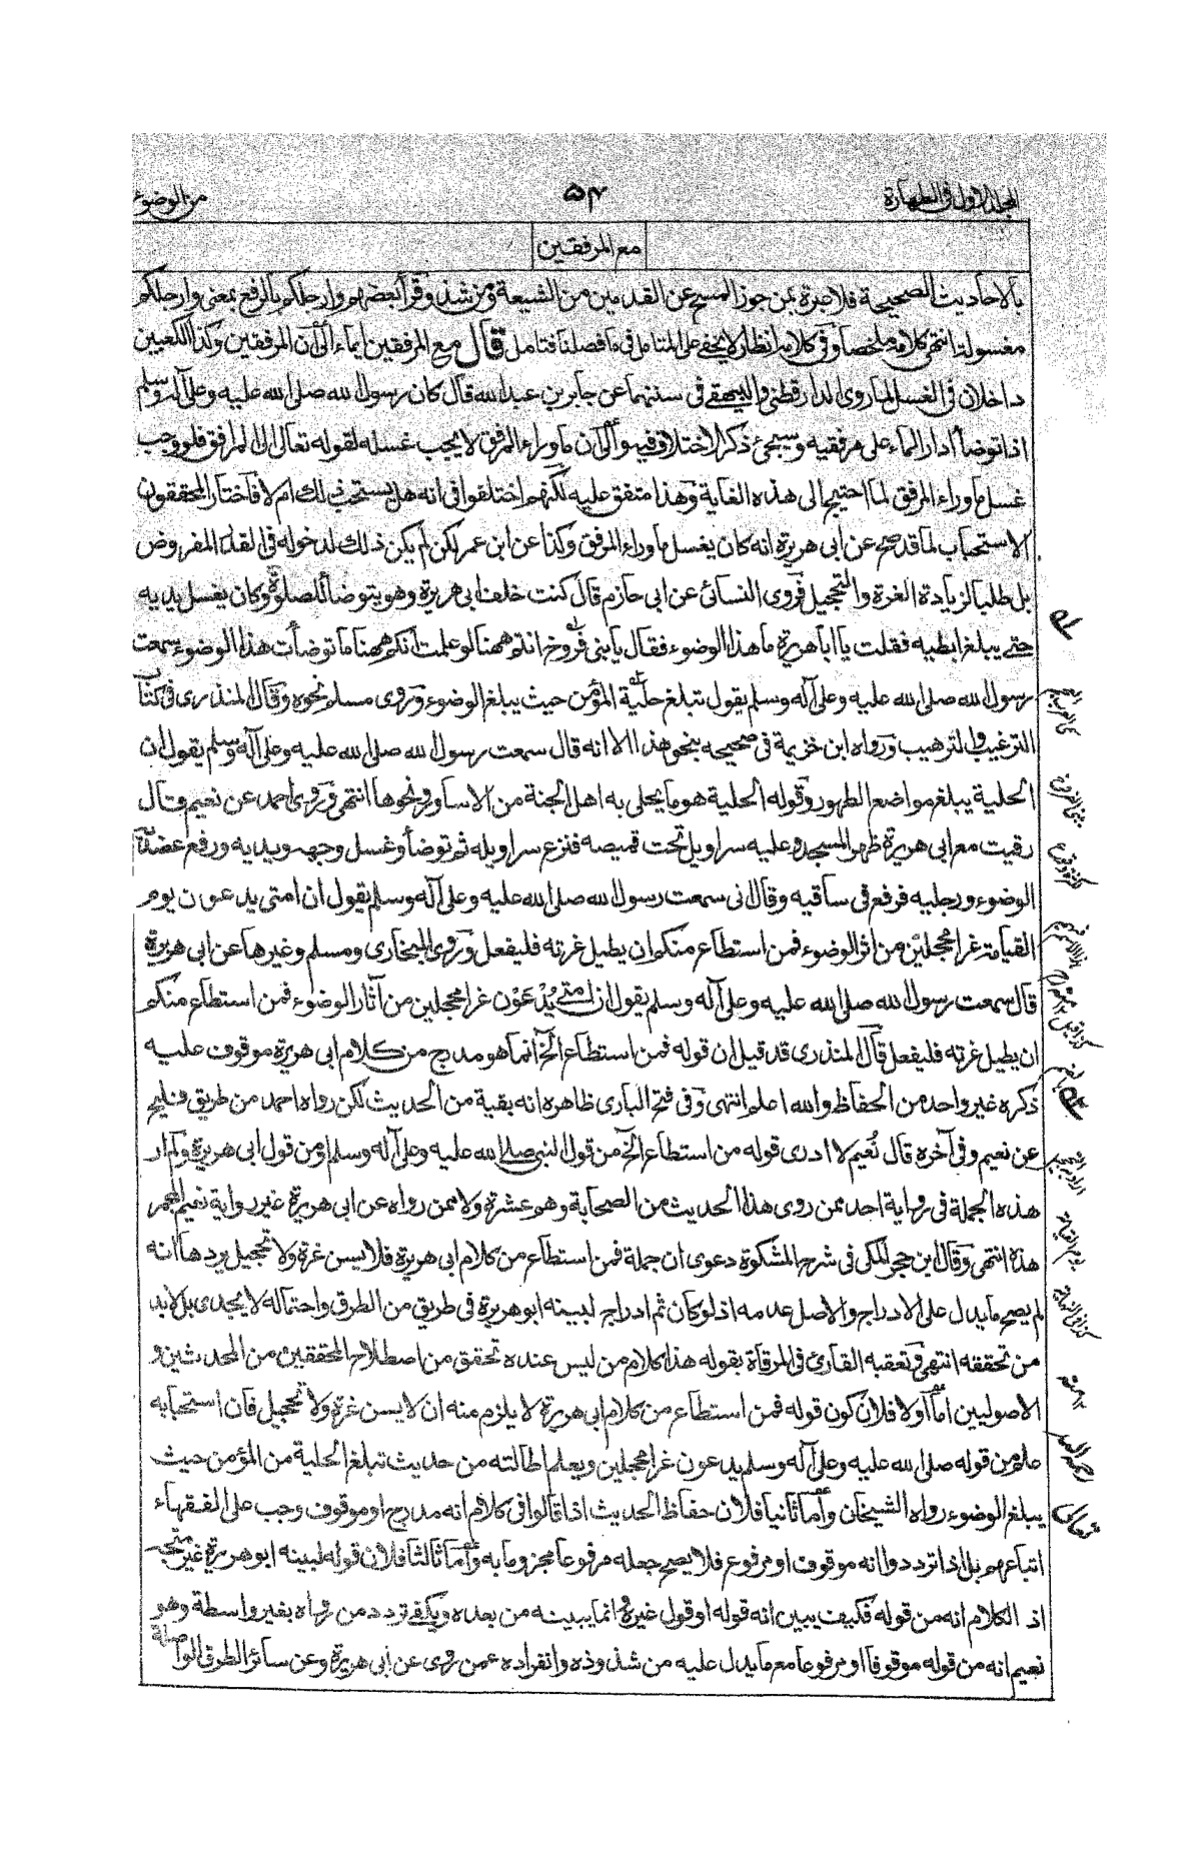 المجلد الاول فى الطهارة ۵۴ من الوضوء
مع المرفقين
بالاحاديث الصحيحة فلاعبرة بمن جوز المسح عن القدمين من الشيعة ومن شذ وقرأ بعضهم وارجلكم بالرفع بمعنى وارجلكم
مغسولة انتهى كلامه ملخصا وفى كلامه انظار لا يخفى على المتامل فى ما فصلنا فتامل قال مع المرفقين ايماء الى ان المرفقين وكذا الكعبين
داخلان فى الغسل لما روى الدارقطنى والبيهقى فى سننهما عن جابر بن عبد الله قال كان رسول الله صلى الله عليه وعلى آله وسلم
اذا توضأ أدار الماء على مرفقيه وسيجئ ذكر الاختلاف فيه والى ان ما وراء المرفق لا يجب غسله لقوله تعالى الى المرافق فلو وجب
غسل ما وراء المرفق لما احتيج الى هذه الغاية وهذا متفق عليه لكنهم اختلفوا فى انه هل يستحب ذلك ام لا فاختار المحققون
الاستحباب لما قد صح عن ابى هريرة انه كان يغسل ما وراء المرفق وكذا عن ابن عمر لكن لم يكن ذلك لدخوله فى القدر المفروض
بل طلبا لزيادة الغرة والتحجيل فروى النسائى عن ابى حازم قال كنت خلف ابى هريرة وهو يتوضأ للصلوة وكان يغسل يديه
حتى يبلغ ابطيه فقلت يا ابا هريرة ما هذا الوضوء فقال يا بنى فروخ انتم ههنا لو علمت انكم ههنا ما توضأت هذا الوضوء سمعت
رسول الله صلى الله عليه وعلى آله وسلم يقول تبلغ حلية المؤمن حيث يبلغ الوضوء وروى مسلم نحوه وقال المنذرى فى كتاب
الترغيب والترهيب ورواه ابن خزيمة فى صحيحه بنحو هذا الا انه قال سمعت رسول الله صلى الله عليه وعلى آله وسلم يقول ان
الحلية يبلغ مواضع الطهور وقوله الحلية هو ما يحلى به اهل الجنة من الاساور ونحوها انتهى وروى احمد عن نعيم قال
رقيت مع ابى هريرة ظهر المسجد وعليه سراويل تحت قميصه فنزع سراويله ثم توضأ وغسل وجهه ويديه ورفع عضديه
الوضوء ورجليه فرفع فى ساقيه وقال انى سمعت رسول الله صلى الله عليه وعلى آله وسلم يقول ان امتى يدعون يوم
القيامة غرا محجلين من اثر الوضوء فمن استطاع منكم ان يطيل غرته فليفعل وروى البخارى ومسلم وغيرها عن ابى هريرة
قال سمعت رسول الله صلى الله عليه وعلى آله وسلم يقول ان امتى يُدْعَوْن غرا محجلين من آثار الوضوء فمن استطاع منكم
ان يطيل غرته فليفعل قال المنذرى قد قيل ان قوله فمن استطاع الخ انما هو مدرج من كلام ابى هريرة موقوف عليه
ذكره غير واحد من الحفاظ والله اعلم انتهى وفى فتح البارى ظاهره انه بقية من الحديث لكن رواه احمد من طريق فليح
عن نعيم وفى آخره قال نُعيم لا ادرى قوله من استطاع الخ من قول النبى صلى الله عليه وعلى آله وسلم او من قول ابى هريرة ولم ار
هذه الجملة فى رواية احد ممن روى هذا الحديث من الصحابة وهو عشرة ولا ممن رواه عن ابى هريرة غير رواية نعيم المجمر
هذه انتهى وقال ابن حجر المكى فى شرح المشكوة دعوى ان جملة فمن استطاع من كلام ابى هريرة فلا يسن غرة ولا تحجيل يردها انه
لم يصح ما يدل على الادراج والاصل عدمه اذ لو كان ثم ادراج لبينه ابو هريرة فى طريق من الطرق واحتماله لا يجدى بل لا بد
من تحققه انتهى وتعقبه القارئ فى المرقاة بقوله هذا كلام من ليس عنده تحقق من اصطلاح المحققين من المحدثين و
الاصوليين اما اولا فلان كون قوله فمن استطاع من كلام ابى هريرة لا يلزم منه ان لا يسن غرة ولا تحجيل فان استحبابه
علم من قوله صلى الله عليه وعلى آله وسلم يدعون غرا محجلين ويعلم اطالته من حديث تبلغ الحلية من المؤمن حيث
يبلغ الوضوء رواه الشيخان وأما ثانيا فلان حفاظ الحديث اذا قالوا فى كلام انه مدرج او موقوف وجب على الفقهاء
اتباعهم بل اذا ترددوا انه موقوف او مرفوع فلا يصح جعله مرفوعا مجزوما به وأما ثالثا فلان قوله لبينه ابو هريرة غير متجه
اذ الكلام انه من قوله فكيف يبين انه قوله او قول غيره وانما يبينه من بعده ويكفى تردد من رواه بغير واسطة وهو
نعيم انه من قوله موقوفا او مرفوعا مع ما يدل عليه من شذوذه وانفراده عمن روى عن ابى هريرة وعن سائر الطرق الواصلة